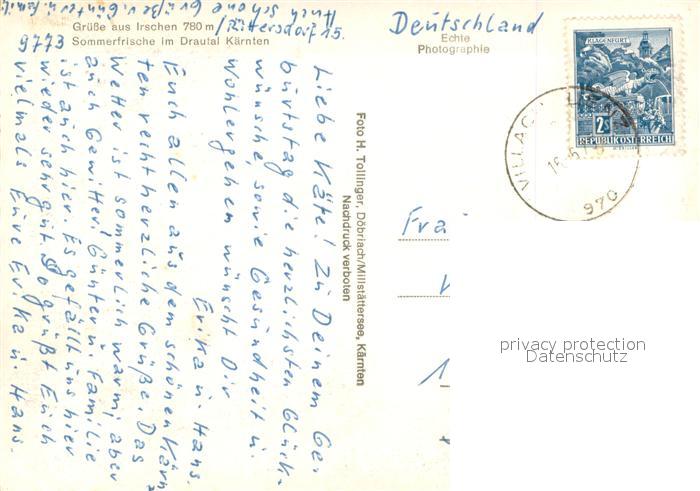 Auch schöne
Grüße v. Günter u. Famili
Grüße aus Irschen 780 m / Rittersdorf 15.
9773 Sommerfrische im Drautal Kärnten
Liebe Käte! Zu Deinem Ge-
burtstag die herzlichsten Glück-
wünsche, sowie Gesundheit u.
Wohlergehen wünscht Dir
Erika u. Hans.
Euch allen aus dem schönen Kärn
ten recht herzliche Grüße. Das
Wetter ist sommerlich warm, aber
auch Gewitter. Günter u. Familie
ist auch hier. Es gefällt uns hier
wieder sehr gut. So grüßt Euch
vielmals Eure Erika u. Hans.
Foto H. Tollinger, Döbriach/Millstättersee, Kärnten
Nachdruck verboten
Deutschland
Echte
Photographie
KLAGENFURT
2 S
REPUBLIK ÖSTERREICH
VILLACH
970
Fra
privacy protection
Datenschutz